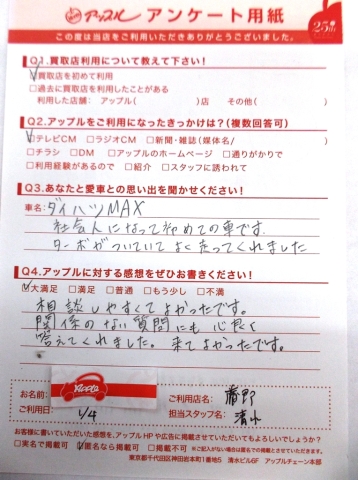 アップル アンケート用紙 25th
この度は当店をご利用いただきありがとうございました。
Q1.買取店利用について教えて下さい!
☑買取店を初めて利用
□過去に買取店を利用したことがある
利用した店舗: アップル( )店 その他( )
Q2.アップルをご利用になったきっかけは?(複数回答可)
☑テレビCM □ラジオCM □新聞・雑誌(媒体名/ )
□チラシ □DM □アップルのホームページ □通りがかりで
□利用経験があるので □紹介 □スタッフに誘われて
Q3.あなたと愛車との思い出を聞かせください!
車名:ダイハツMAX
社会人になって初めての車です。
ターボがついていてよく走ってくれました
Q4.アップルに対する感想をぜひお書きください!
☑大満足 □満足 □普通 □もう少し □不満
相談しやすくてよかったです。
関係のない質問にも心良く
答えてくれました。来てよかったです。
お名前:
Apple
ご利用店名:
ご利用日: 1/4
担当スタッフ名: 清水
お客様に書いていただいた感想を、アップルHPや広告に掲載させていただいてもよろしいでしょうか?
□実名で掲載可 ☑匿名なら掲載可 □掲載不可 ※ご記入がない場合は匿名での掲載とさせていただきます。
東京都千代田区神田岩本町1番地5 清水ビル6F アップルチェーン本部